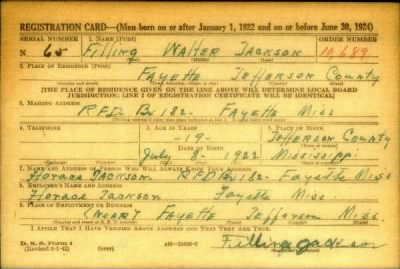 REGISTRATION CARD—(Men born on or after January 1, 1922 and on or before June 30, 1924)
SERIAL NUMBER 1. NAME (Print) ORDER NUMBER
N 65 Filling Walter Jackson 10,689
2. PLACE OF RESIDENCE (Print)
Fayette Jefferson County
[THE PLACE OF RESIDENCE GIVEN ON THE LINE ABOVE WILL DETERMINE LOCAL BOARD
JURISDICTION; LINE 2 OF REGISTRATION CERTIFICATE WILL BE IDENTICAL]
3. MAILING ADDRESS
R.F.D. Bx 182- Fayette Miss
4. TELEPHONE 5. AGE IN YEARS 6. PLACE OF BIRTH
-19- Jefferson County
DATE OF BIRTH
July 8- 1922 Mississippi
7. NAME AND ADDRESS OF PERSON WHO WILL ALWAYS KNOW YOUR ADDRESS
Horace Jackson R.F.D. Bx 182- Fayette Miss
8. EMPLOYER'S NAME AND ADDRESS
Horace Jackson Fayette Miss.
9. PLACE OF EMPLOYMENT OR BUSINESS
(near) Fayette Jefferson Miss.
I AFFIRM THAT I HAVE VERIFIED ABOVE ANSWERS AND THAT THEY ARE TRUE.
D. S. S. Form 1 (over)
Filling Jackson